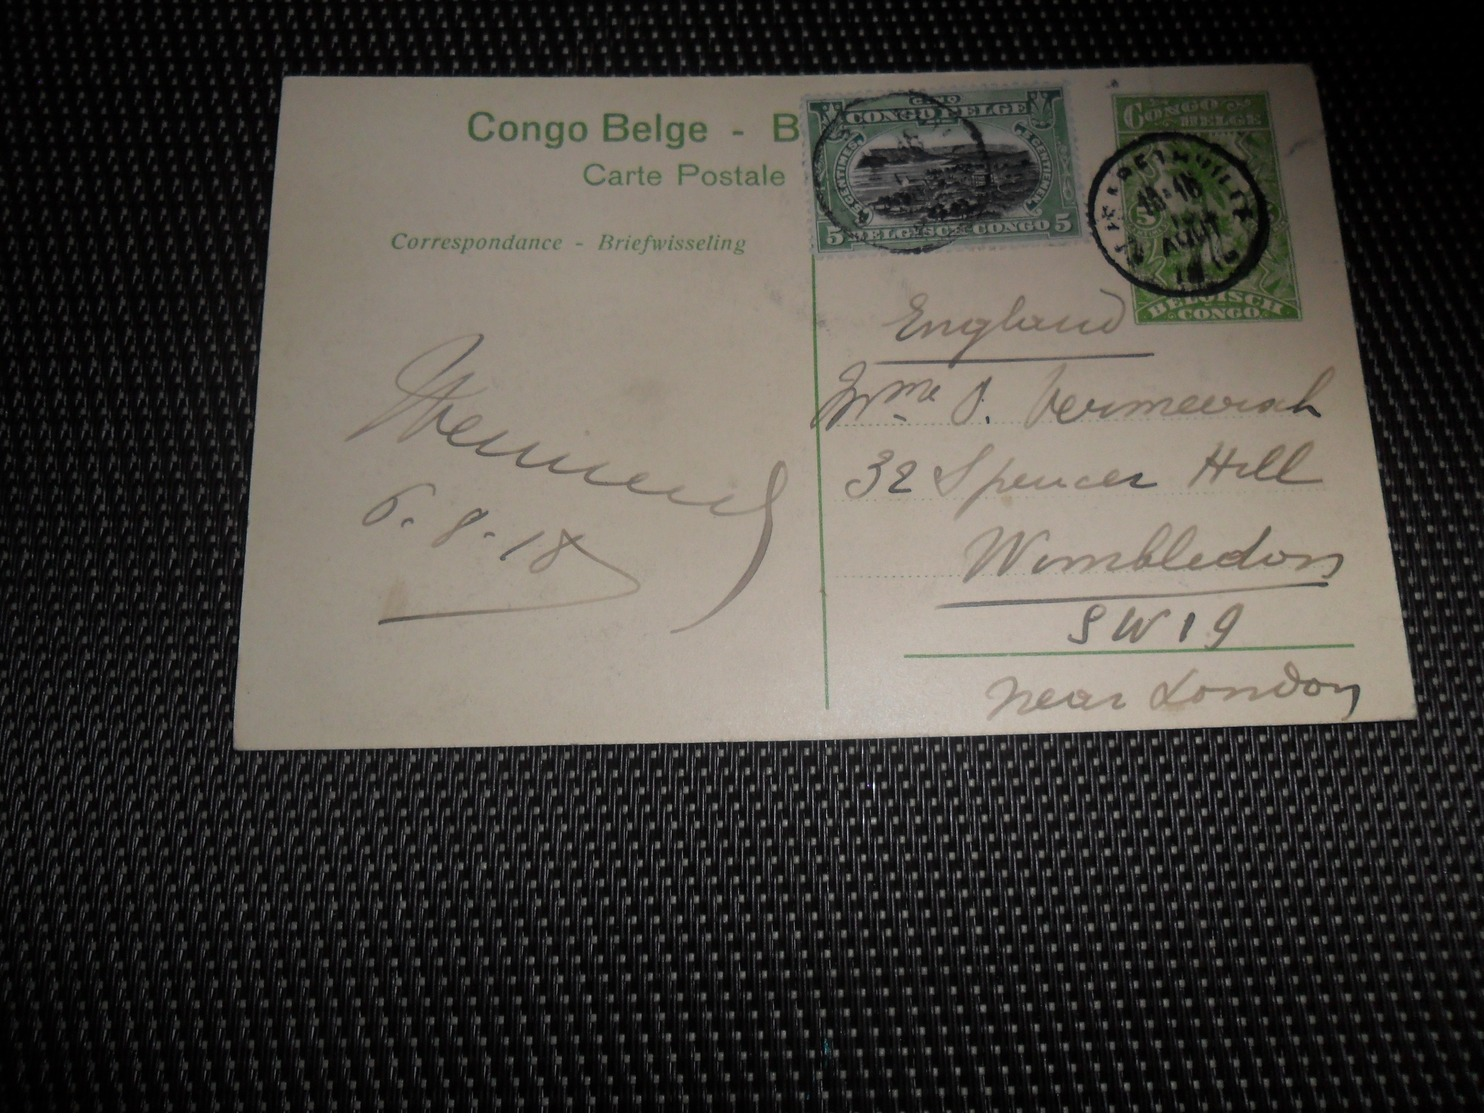 Congo Belge - B
Carte Postale
Correspondance - Briefwisseling
CONGO BELGE
5 CENTIMES
5 CENTIEMEN
5 BELGISCH CONGO 5
CONGO
BELGE
5
AOUT
BELGISCH
CONGO
England
Mme J. Vermeersch
32 Spencer Hill
Wimbledon
SW19
near London
6.8.18